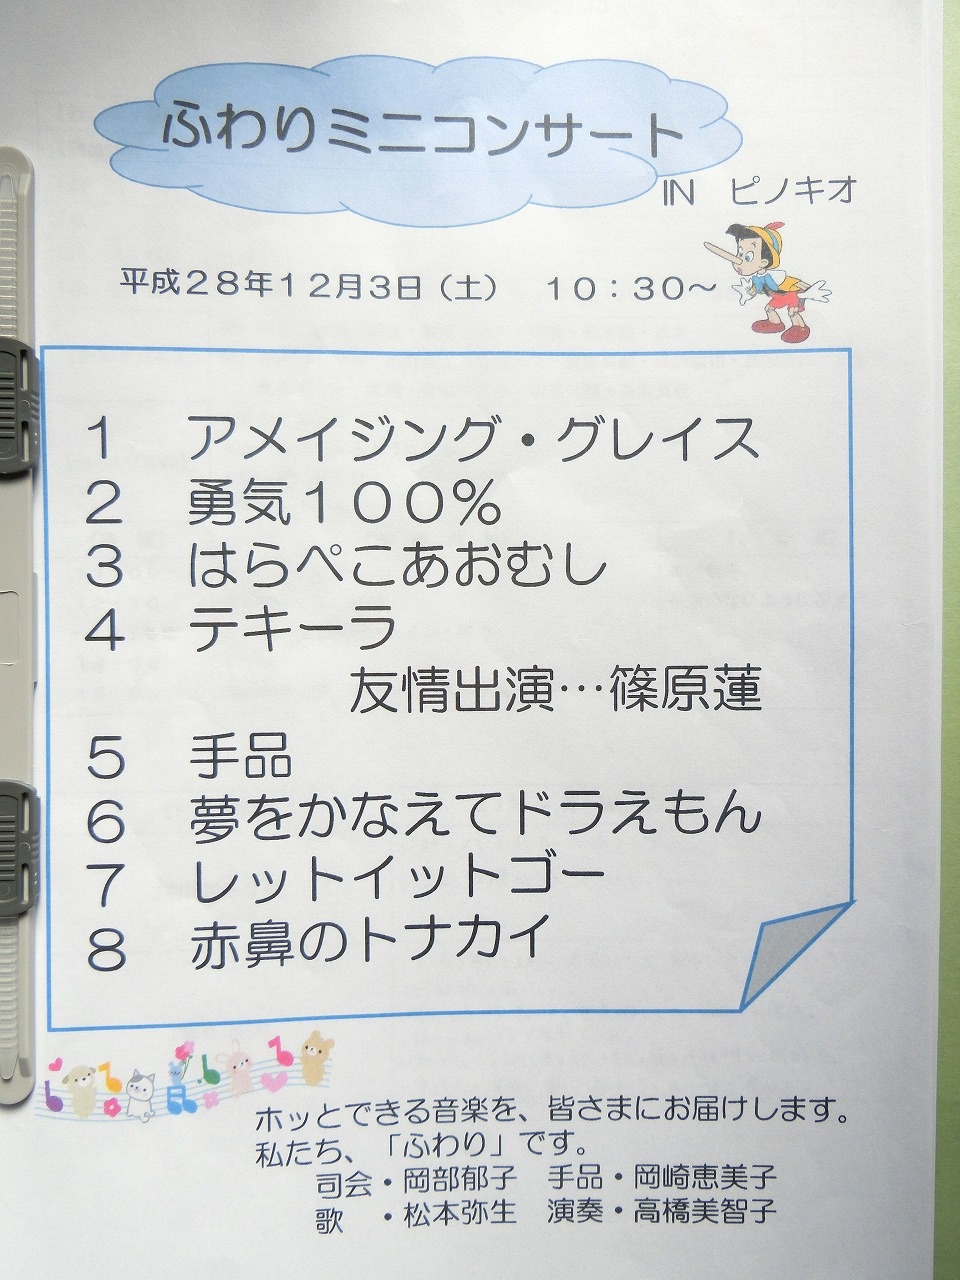 ふわりミニコンサート
IN　ピノキオ
平成２８年１２月３日（土）　１０：３０～
１　アメイジング・グレイス
２　勇気１００％
３　はらぺこあおむし
４　テキーラ
友情出演…篠原蓮
５　手品
６　夢をかなえてドラえもん
７　レットイットゴー
８　赤鼻のトナカイ
ホッとできる音楽を、皆さまにお届けします。
私たち、「ふわり」です。
司会・岡部郁子　手品・岡崎恵美子
歌　・松本弥生　演奏・高橋美智子